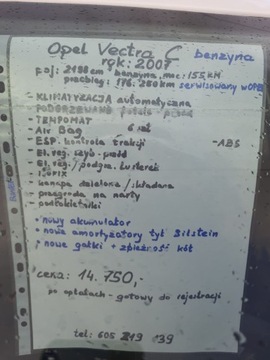 Opel Vectra C benzyna
rok: 2007
poj: 2198cm benzyna, moc: 155 KM
przebieg: 176.250km serwisowany w OPEL
- KLIMATYZACJA automatyczna
- PODGRZEWANE fotele - przód
- TEMPOMAT
- Air Bag 6 szt
- ESP - kontrola trakcji - ABS
- El. reg. szyb - przód
- El. reg./podgrz. lusterek
- ISOFIX
- kanapa dzielona/składana
- przegroda na narty
- podłokietniki
• nowy akumulator
• nowe amortyzatory tył Bilstein
• nowe gałki + zbieżność kół
cena: 14.750,-
po opłatach - gotowy do rejestracji
tel: 605 219 139